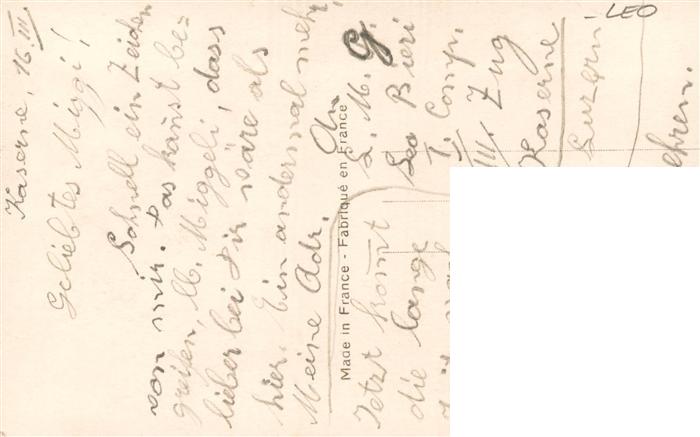 Kaserne, 16. III.
Geliebtes Miggi!
Schnell ein Zeichen
von mir. Das kanst be-
greifen, lb. Miggeli, dass
lieber bei Dir wäre als
hier. Ein andermal mehr.
Meine Adr.
An
L. M. G.
Leo Bieri
I. Comp.
III. Zug
Kaserne
Luzern
Jetzt kommt
die lange
ehren.
Made in France - Fabriqué en France
-LEO